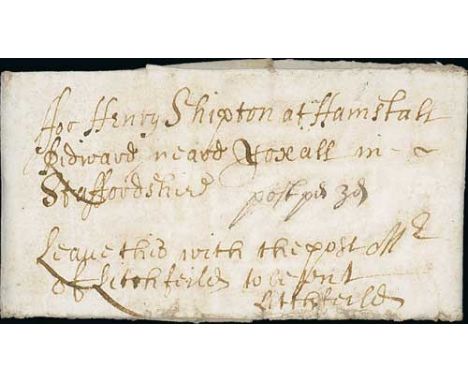 For Henry Shipton at Hamstall
Ridward neard Yoxall in
Staffordshire
post pd 3d
Leave this with the post Mr
of Litchfeild to be sent
Litchfeild